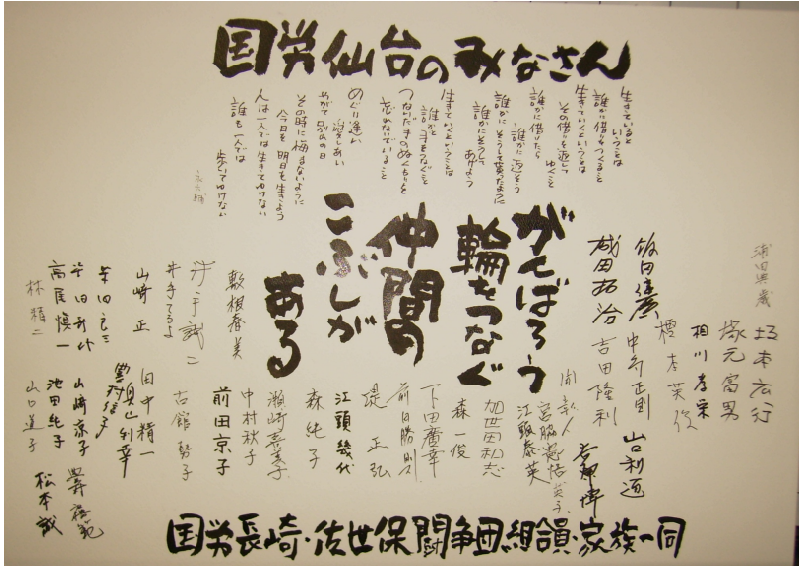 国労仙台のみなさん
生きていると
いうことは
誰かに借りをつくること
生きていくということは
その借りを返して
ゆくこと
誰かに借りたら
誰かに返そう
誰かにそうして貰ったように
誰かにそうして
あげよう
生きていくということは
誰かと手をつなぐこと
つないだ手のぬくもりを
忘れないでいること
めぐり逢い
愛しあい
やがて別れの日
その時に悔まないように
今日を明日を生きよう
人は一人では生きてゆけない
誰も一人では
歩いてゆけない
永六輔
がんばろう
輪をつなぐ
仲間の
こぶしが
ある
坂本宏行
塚元富男
相川孝栄
中多正則
山口利通
成田拓治
吉田隆利
江頭泰英
加世田和志
森一俊
下田廣幸
前田勝則
堤正弘
江頭幾代
森純子
瀬崎喜美子
中村秋子
前田京子
藪根春美
古舘勢子
井手てるよ
山崎正
田中精一
山崎京子
池田純子
高尾慎一
山口道子
松本誠
国労長崎・佐世保闘争団組合員・家族一同